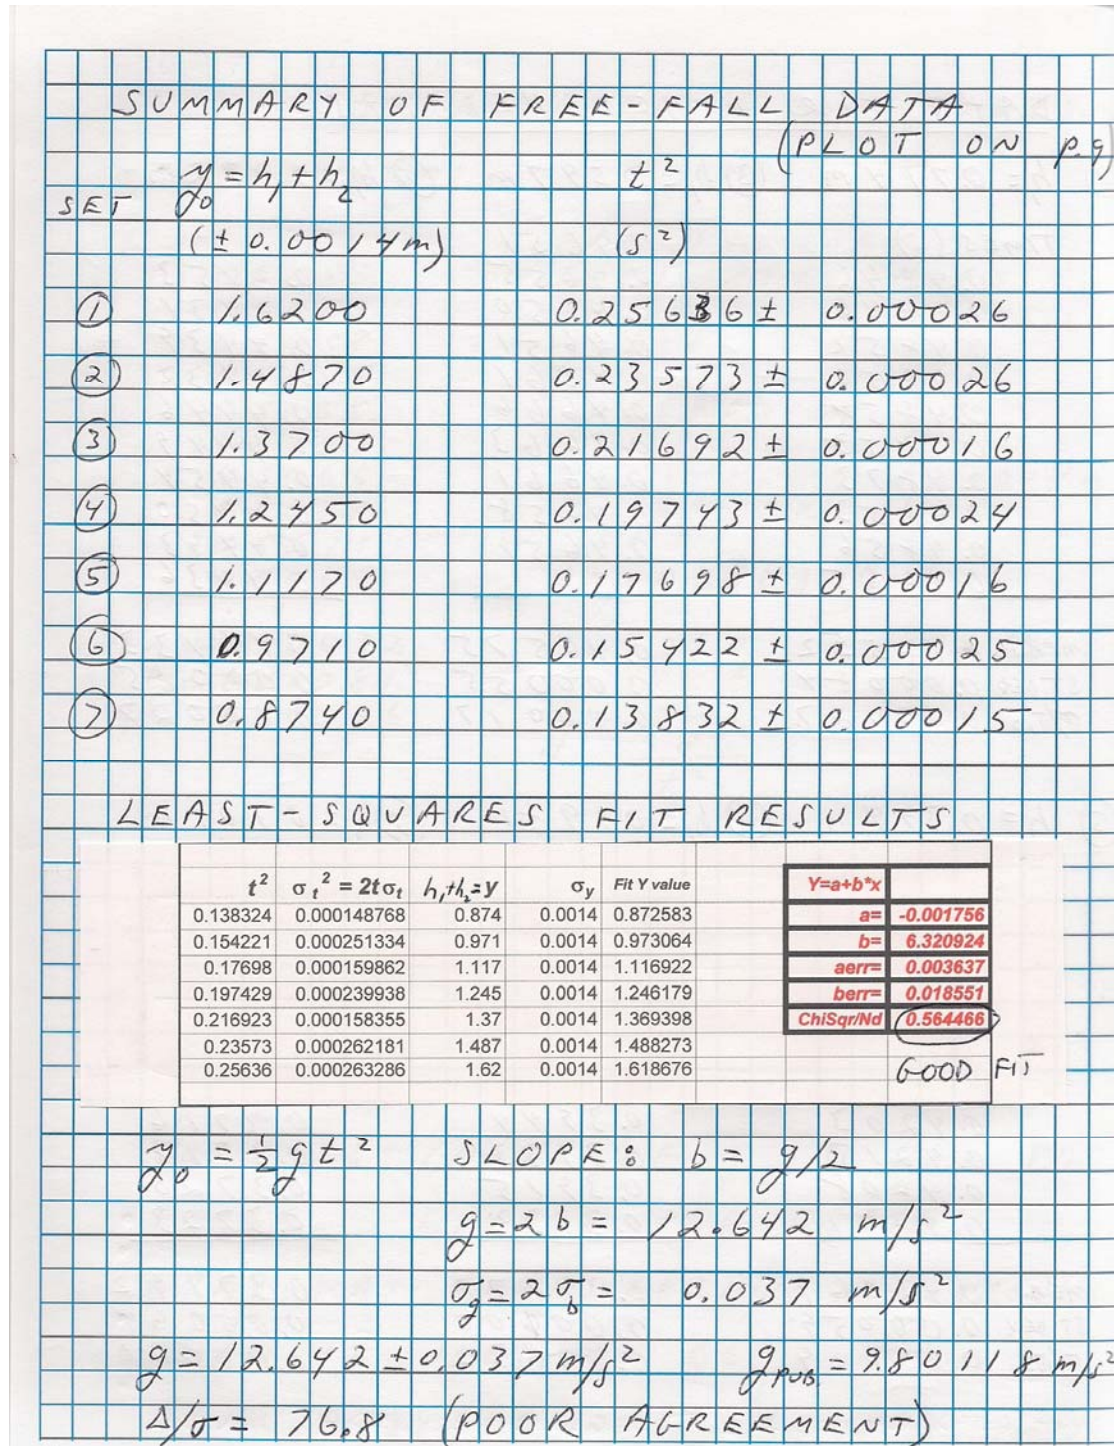 SUMMARY OF FREE-FALL DATA
(PLOT ON p.9)
SET y₀ = h₁ + h₂ t²
(± 0.0014m) (s²)
① 1.6200 0.25636 ± 0.00026
② 1.4870 0.23573 ± 0.00026
③ 1.3700 0.21692 ± 0.00016
④ 1.2450 0.19743 ± 0.00024
⑤ 1.1170 0.17698 ± 0.00016
⑥ 0.9710 0.15422 ± 0.00025
⑦ 0.8740 0.13832 ± 0.00015
LEAST-SQUARES FIT RESULTS
t² σt² = 2tσt h₁+h₂=y σy Fit Y value Y=a+b*x
0.138324 0.000148768 0.874 0.0014 0.872583 a= -0.001756
0.154221 0.000251334 0.971 0.0014 0.973064 b= 6.320924
0.17698 0.000159862 1.117 0.0014 1.116922 aerr= 0.003637
0.197429 0.000239938 1.245 0.0014 1.246179 berr= 0.018551
0.216923 0.000158355 1.37 0.0014 1.369398 ChiSqr/Nd 0.564466
0.23573 0.000262181 1.487 0.0014 1.488273
0.25636 0.000263286 1.62 0.0014 1.618676 GOOD FIT
y₀ = ½gt² SLOPE: b = g/2
g = 2b = 12.642 m/s²
σg = 2σb = 0.037 m/s²
g = 12.642 ± 0.037 m/s² gPUB. = 9.80118 m/s²
Δ/σ = 76.8 (POOR AGREEMENT)